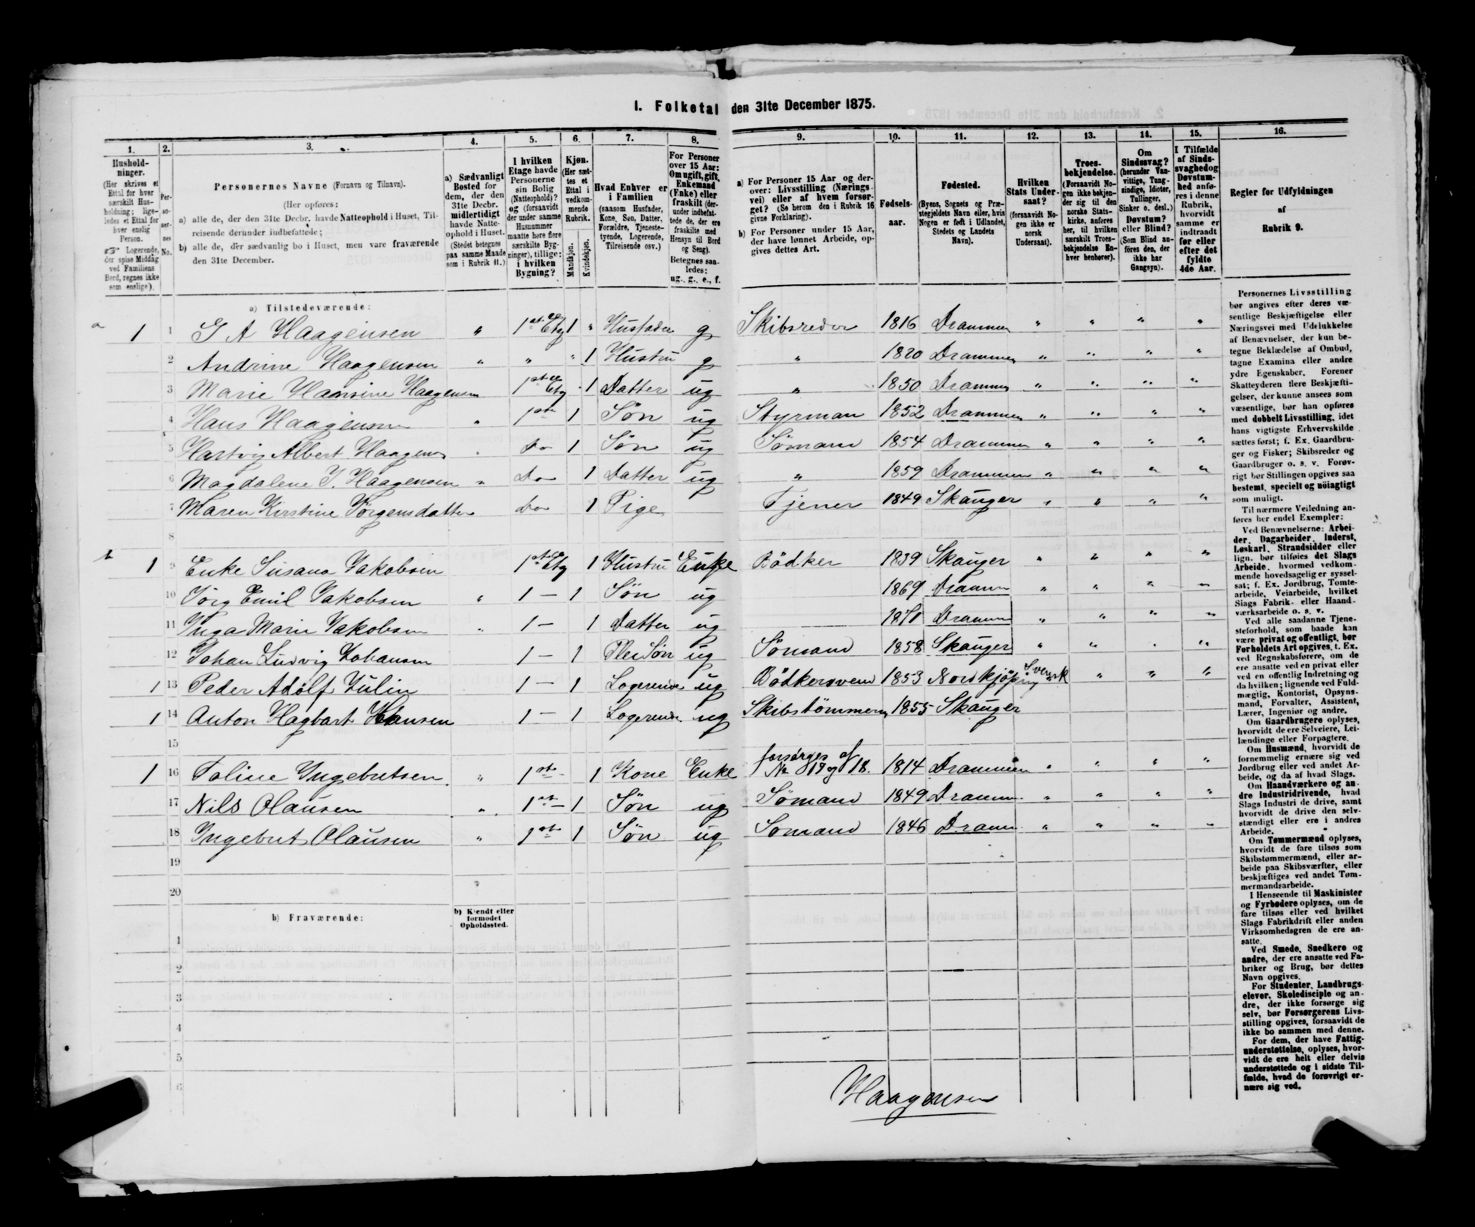 I. Folketal den 31te December 1875.
1. 2. 3. 4. 5. 6. 7. 8. 9. 10. 11. 12. 13. 14. 15. 16.
Husholdninger. (Her skrives et Ettal for hver særskilt Husholdning; ligeledes et Ettal for hver enslig Person. Logerende, der spise Middag ved Familiens Bord, regnes ikke som enslige).
Personernes No.
Personernes Navne (Fornavn og Tilnavn).
(Her opføres:
a) alle de, der den 31te Decbr. havde Natteophold i Huset, Tilreisende derunder indbefattede;
b) alle de, der sædvanlig bo i Huset, men vare fraværende den 31te December.
a) Sædvanligt Bosted for dem, der den 31te Decbr. midlertidigt havde Natteophold i Huset. (Stedet betegnes paa samme Maade som i Rubrik 11.)
I hvilken Etage havde Personerne sin Bolig (Natteophold)? og (forsaavidt der under samme Husnummer maatte høre flere særskilte Bygninger), tillige: i hvilken Bygning?
Kjøn. (Her sættes et Ettal i vedkommende Rubrik. Mandkjøn. Kvindekjøn.
Hvad Enhver er i Familien (saasom Husfader, Kone, Søn, Datter, Forældre, Tjenestetyende, Logerende, Tilreisende osv.)
For Personer over 15 Aar: Om ugift, gift, Enkemand (Enke) eller fraskilt (derunder indbefattede de, der ere fraskilte med Hensyn til Bord og Seng). Betegnes saaledes: ug. g. e., f.
a) For Personer 15 Aar og derover: Livsstilling (Næringsvei) eller af hvem forsørget? (Se herom den i Rubrik 16 givne Forklaring).
b) For Personer under 15 Aar, der have lønnet Arbeide, opgives dettes Art.
Fødselsaar.
Fødested. (Byens, Sognets og Præstegjeldets Navn eller, hvis Nogen er født i Udlandet, Stedets og Landets Navn).
Hvilken Stats Undersaat? (forsaavidt Nogen ikke er norsk Undersaat).
Troesbekjendelse. (Forsaavidt Nogen ikke bekjender sig til den norske Statskirke, anføres her, til hvilken særskilt Troesbekjendelse Enhver henhører).
Om Sindssvag? (herunder Vanvittige, Tungsindige, Idioter, Tullinger, Sinker o. desl.). Døvstum? eller Blind? (Som Blind anføres den, der ikke har Gangsyn).
I Tilfælde af Sindssvaghed og Døvstumhed anføres i denne Rubrik, hvorvidt samme er indtraadt før eller efter det fyldte 4de Aar.
Regler for Udfyldningen af Rubrik 9.
a) Tilstedeværende:
1 1 G A Haagensen " 1st Etg 1 " Husfader g Skibsreder 1816 Drammen " " " "
2 Andrine Haagensen " " " 1 Hustru g " 1820 Drammen " " " "
3 Marie Hansine Haagensen 1st Etg 1 Datter ug " 1850 Drammen " " " "
4 Hans Haagensen " 1st 1 Søn ug Styrman 1852 Drammen " " " "
5 Hartvig Albert Haagens " do 1 Søn ug Sømand 1854 Drammen " " " "
6 Magdalene J. Haagensen " Do 1 Datter ug " 1859 Drammen " " " "
7 Maren Kirstine Jørgensdatter do 1 Pige Tjener 1849 Skauger " " " "
8
1 9 Enke Susana Jakobsen 1st Etg 1 Hustru Enke Bødker 1839 Skauger " " " "
10 Jørg Emil Jakobsen " 1 — 1 Søn ug 1869 Dramen " " "
11 Inga Marie Jakobsen " 1 — 1 Datter ug 1871 Dramen " " " "
12 Johan Ludvig Johansen 1 — 1 Plei Søn ug Sømand 1858 Skauger " " " "
1 13 Peder Adolf Julin 1 — 1 Logerende ug Bødkersvend 1853 Nordkjøping " " "
1 14 Anton Hagbart Hansen 1 — 1 Logerende ug Skibstømmerm 1855 Skauger
15
1 16 Foline Ingebretsen " 1st 1 Kone Enke forsørges af No 17 og 18. 1814 Drammen " " " "
17 Nils Olausen " 1st 1 Søn ug Sømand 1849 Dramen " " " "
18 Ingebret Olausen " 1st 1 Søn ug Sømand 1846 Dramn " " " "
19
20
b) Fraværende:
b) Kjendt eller formodet Opholdssted.
1
2
3
4
5
6
Haagensen
Personernes Livsstilling
bør angives efter deres væ-
sentlige Beskjæftigelse eller
Næringsvei med Udelukkelse
af Benævnelser, der kun be-
tegne Beklædelse af Ombud,
tagne Examina eller andre
ydre Egenskaber. Forener
Skatteyderen flere Beskjæfti-
gelser, der kunne ansees som
væsentlige, bør han opføres
med dobbelt Livsstilling, idet
hans vigtigste Erhvervskilde
sættes først; f. Ex. Gaardbru-
ger og Fisker; Skibsreder og
Gaardbruger o. s. v. Forøv-
rigt bør Stillingen opgives saa
bestemt, specielt og nöiagtigt
som muligt.
Til nærmere Veiledning an-
føres her endel Exempler:
Ved Benævnelserne: Arbei-
der, Dagarbeider, Inderst,
Løskarl, Strandsidder eller
lign. bør tilføies det Slags
Arbeide, hvormed vedkom-
mende hovedsagelig er syssel-
sat; f. Ex. Jordbrug, Tomte-
arbeide, Veiarbeide, hvilket
Slags Fabrik- eller Haand-
værksarbeide o. s. v.
Ved alle saadanne Tjene-
steforhold, som baade kan
være privat og offentligt, bør
Forholdets Art opgives, t. Ex.
ved Regnskabsførere, om de
ere ansatte ved en privat eller
ved en offentlig Indretning og
da hvilken; lignende ved Fuld-
mægtig, Kontorist, Opsyns-
mand, Forvalter, Assistent,
Lærer, Ingeniør og andre.
Om Gaardbrugere oplyses,
hvorvidt de ere Selveiere, Lei-
lændinge eller Forpagtere.
Om Husmænd, hvorvidt de
fornemmelig ernære sig ved
Jordbrug eller ved andet Ar-
beide, og da af hvad Slags.
Om Haandværkere og an-
dre Industridrivende, hvad
Slags Industri de drive, samt
hvorvidt de drive den selv-
stændigt eller ere i andres
Arbeide.
Om Tømmermænd oplyses,
hvorvidt de fare tilsøs som
Skibstømmermænd, eller ar-
beide paa Skibsværfter, eller
beskjæftiges ved andet Tøm-
mermandsarbeide.
I Henseende til Maskinister
og Fyrbødere oplyses, om de
fare tilsøs eller ved hvilket
Slags Fabrikdrift eller anden
Virksomhedsgren de ere an-
satte.
Ved Smede, Snedkere og
andre, der ere ansatte ved Fa-
briker og Brug, bør dettes
Navn opgives.
For Studenter, Landbrugs-
elever, Skoledisciple og an-
dre, der ikke forsørge sig
selv, bør Forsørgerens Livs-
stilling opgives, forsaavidt de
ikke bo sammen med denne.
For dem, der have Fattig-
understøttelse, oplyses, hvor-
vidt de ere helt eller delvis
understøttede og i sidste Til-
fælde, hvad de forøvrigt er-
nære sig ved.